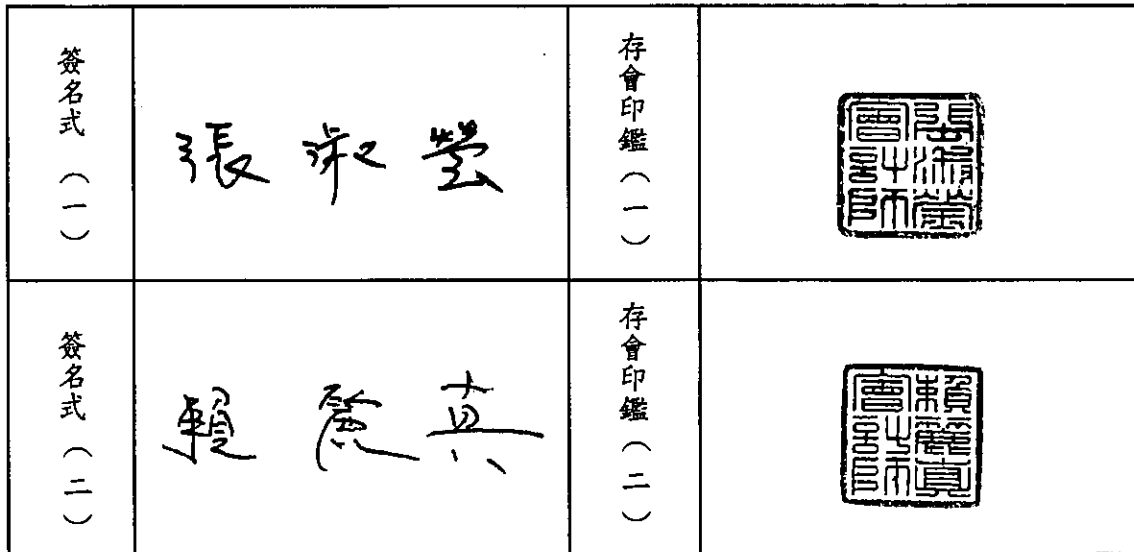 簽名式（一）
張淑瑩
存會印鑑（一）
張淑瑩會計師
簽名式（二）
賴麗真
存會印鑑（二）
賴麗真會計師